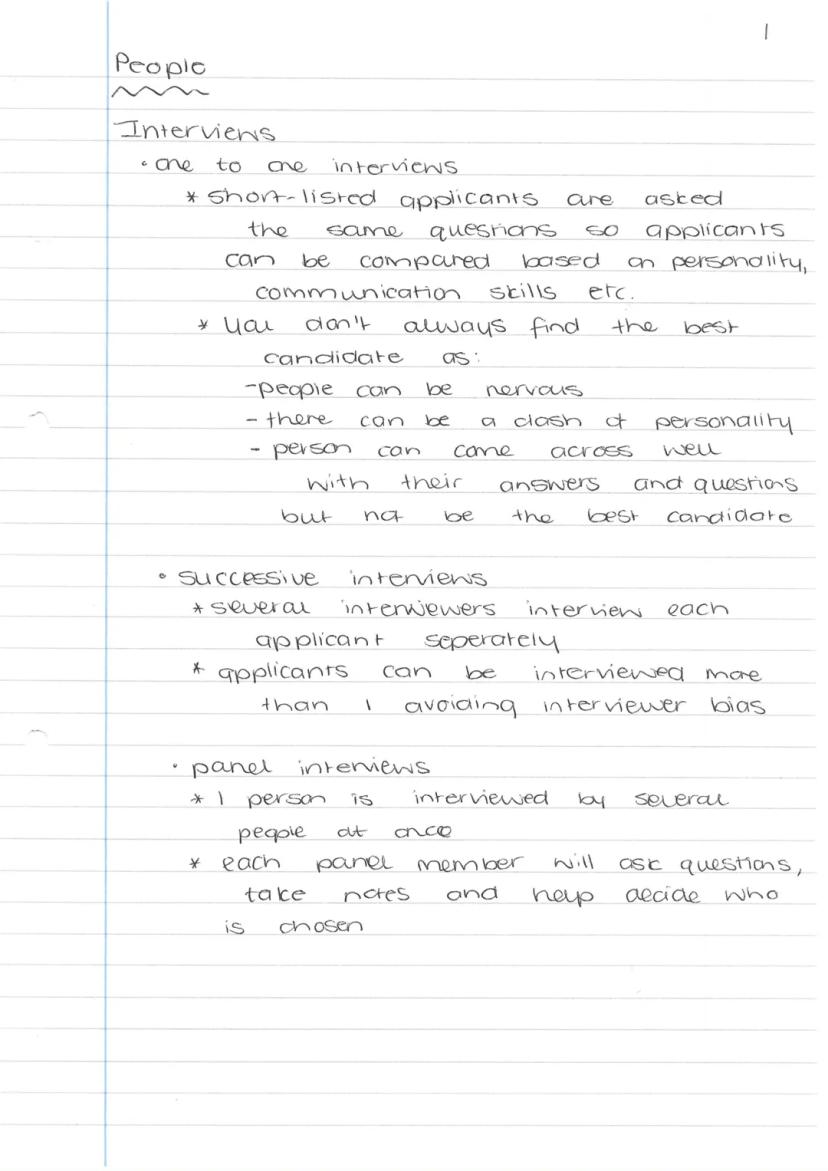 1
People
Interviews
• one to one interviews
* short-listed applicants are asked
the same questions so applicants
can be compared based on personality,
communication skills etc.
* you don't always find the best
candidate as:
- people can be nervous
- there can be a clash of personality
- person can come across well
with their answers and questions
but not be the best candidate
• successive interviews
* several interviewers interview each
applicant seperately
* applicants can be interviewed more
than 1 avoiding interviewer bias
• panel interviews
* 1 person is interviewed by several
people at once
* each panel member will ask questions,
take notes and help decide who
is chosen